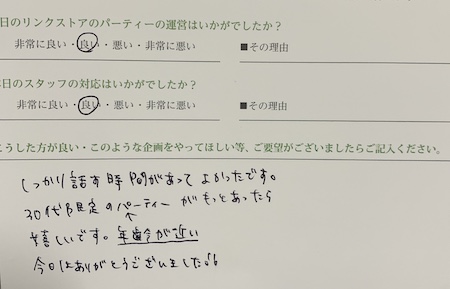 日のリンクストアのパーティーの運営はいかがでしたか？
非常に良い・良い・悪い・非常に悪い ■その理由
日のスタッフの対応はいかがでしたか？
非常に良い・良い・悪い・非常に悪い ■その理由
こうした方が良い・このような企画をやってほしい等、ご要望がございましたらご記入ください。
しっかり話す時間があってよかったです。
30代限定のパーティーがもっとあったら
嬉しいです。年齢が近い
今日はありがとうございました